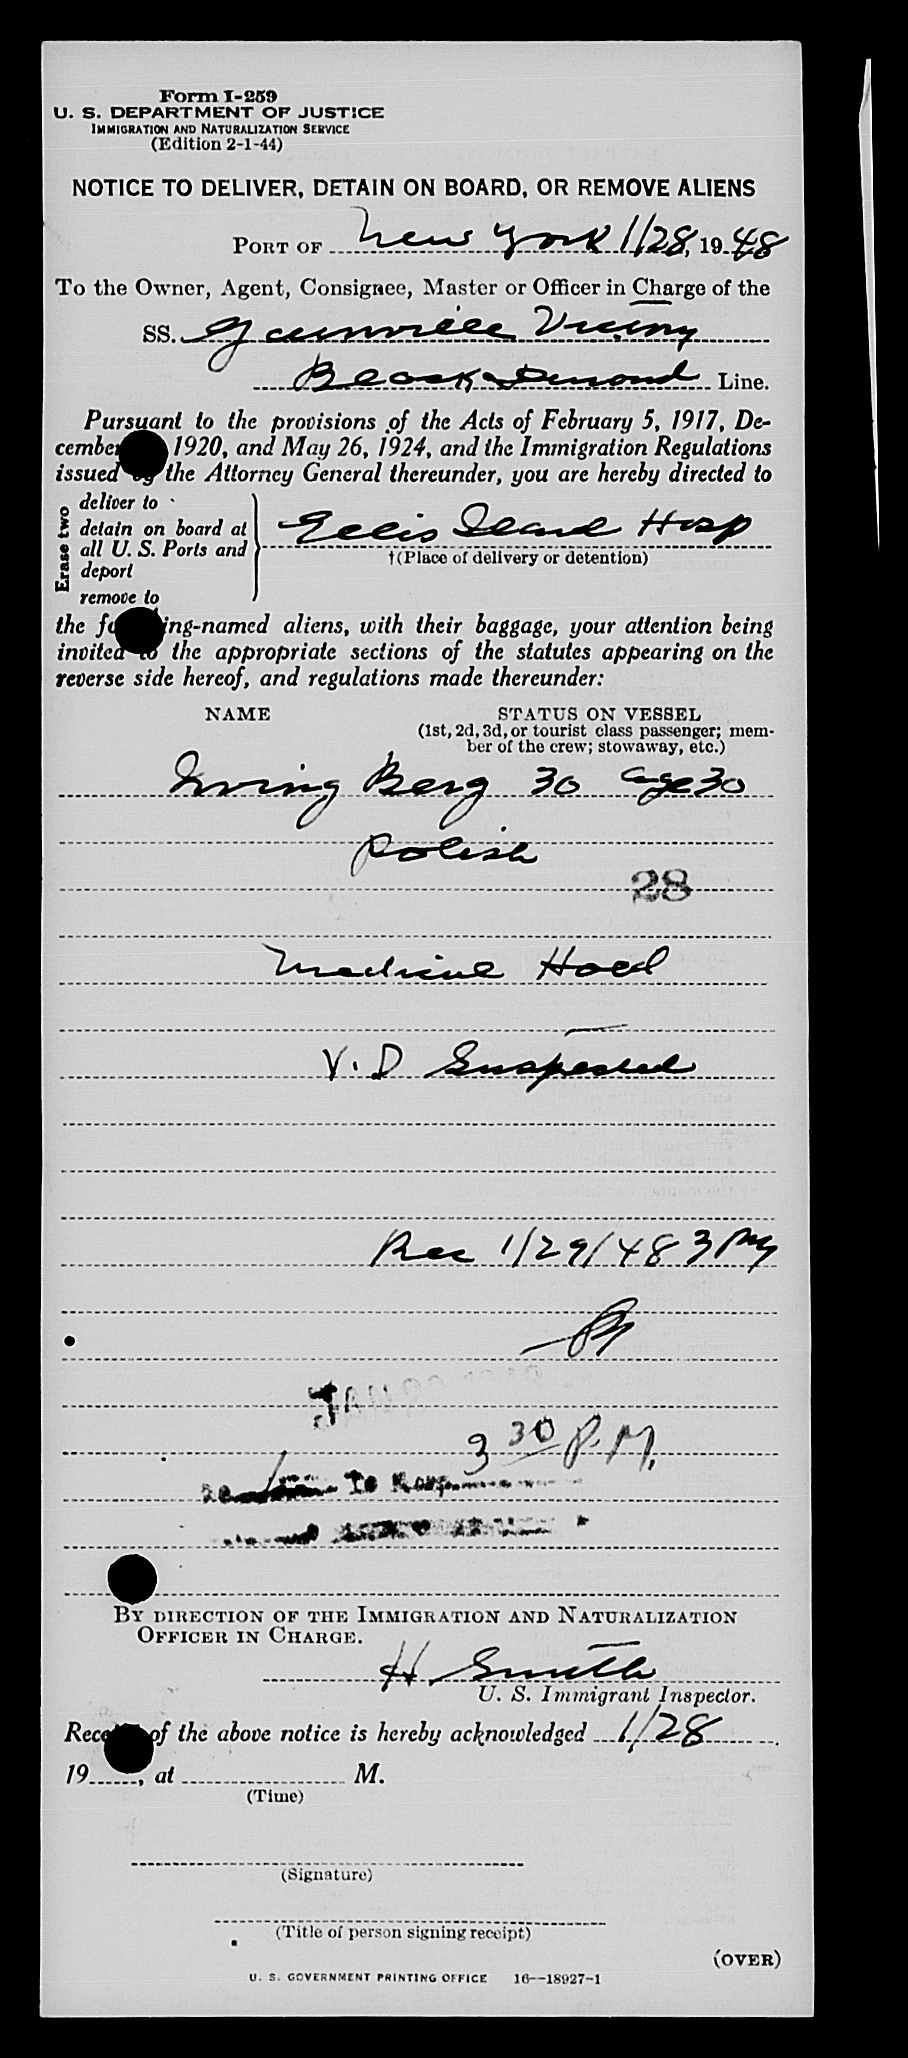 Form I-259
U. S. DEPARTMENT OF JUSTICE
IMMIGRATION AND NATURALIZATION SERVICE
(Edition 2-1-44)
NOTICE TO DELIVER, DETAIN ON BOARD, OR REMOVE ALIENS
PORT OF New York 1/28, 1948
To the Owner, Agent, Consignee, Master or Officer in Charge of the
SS. Victory
Line.
Pursuant to the provisions of the Acts of February 5, 1917, De-
cember 1920, and May 26, 1924, and the Immigration Regulations
issued by the Attorney General thereunder, you are hereby directed to
Erase two
deliver to
detain on board at
all U. S. Ports and
deport
remove to
Ellis Island Hosp
†(Place of delivery or detention)
the following-named aliens, with their baggage, your attention being
invited to the appropriate sections of the statutes appearing on the
reverse side hereof, and regulations made thereunder:
NAME STATUS ON VESSEL
(1st, 2d, 3d, or tourist class passenger; mem-
ber of the crew; stowaway, etc.)
Irving Berg 30 age 30
Polish
28
V.D Suspected
Rec 1/29/48 3 PM
JAN
3 30 P.M.
BY DIRECTION OF THE IMMIGRATION AND NATURALIZATION
OFFICER IN CHARGE.
H Smith
U. S. Immigrant Inspector.
Receipt of the above notice is hereby acknowledged 1/28
19......, at ........................ M.
(Time)
(Signature)
(Title of person signing receipt)
(OVER)
U. S. GOVERNMENT PRINTING OFFICE 16--18927-1